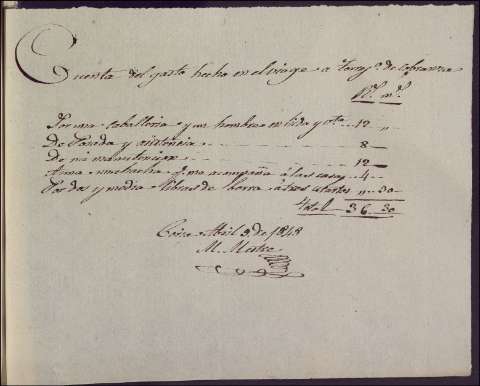 Cuenta del gasto hecho en el viage a de cobranza
Rs. ms.
Por una caballeria y un hombre en hida y vta. .. 12 "
De Posada y asistencia 8
De mi manutencion 12
A una muchacha q. me acompaña á las casas .. 4
Por dos y media libras de á tres cuartos " 30
Total 36. 30
Abril 9. de 1843
M.